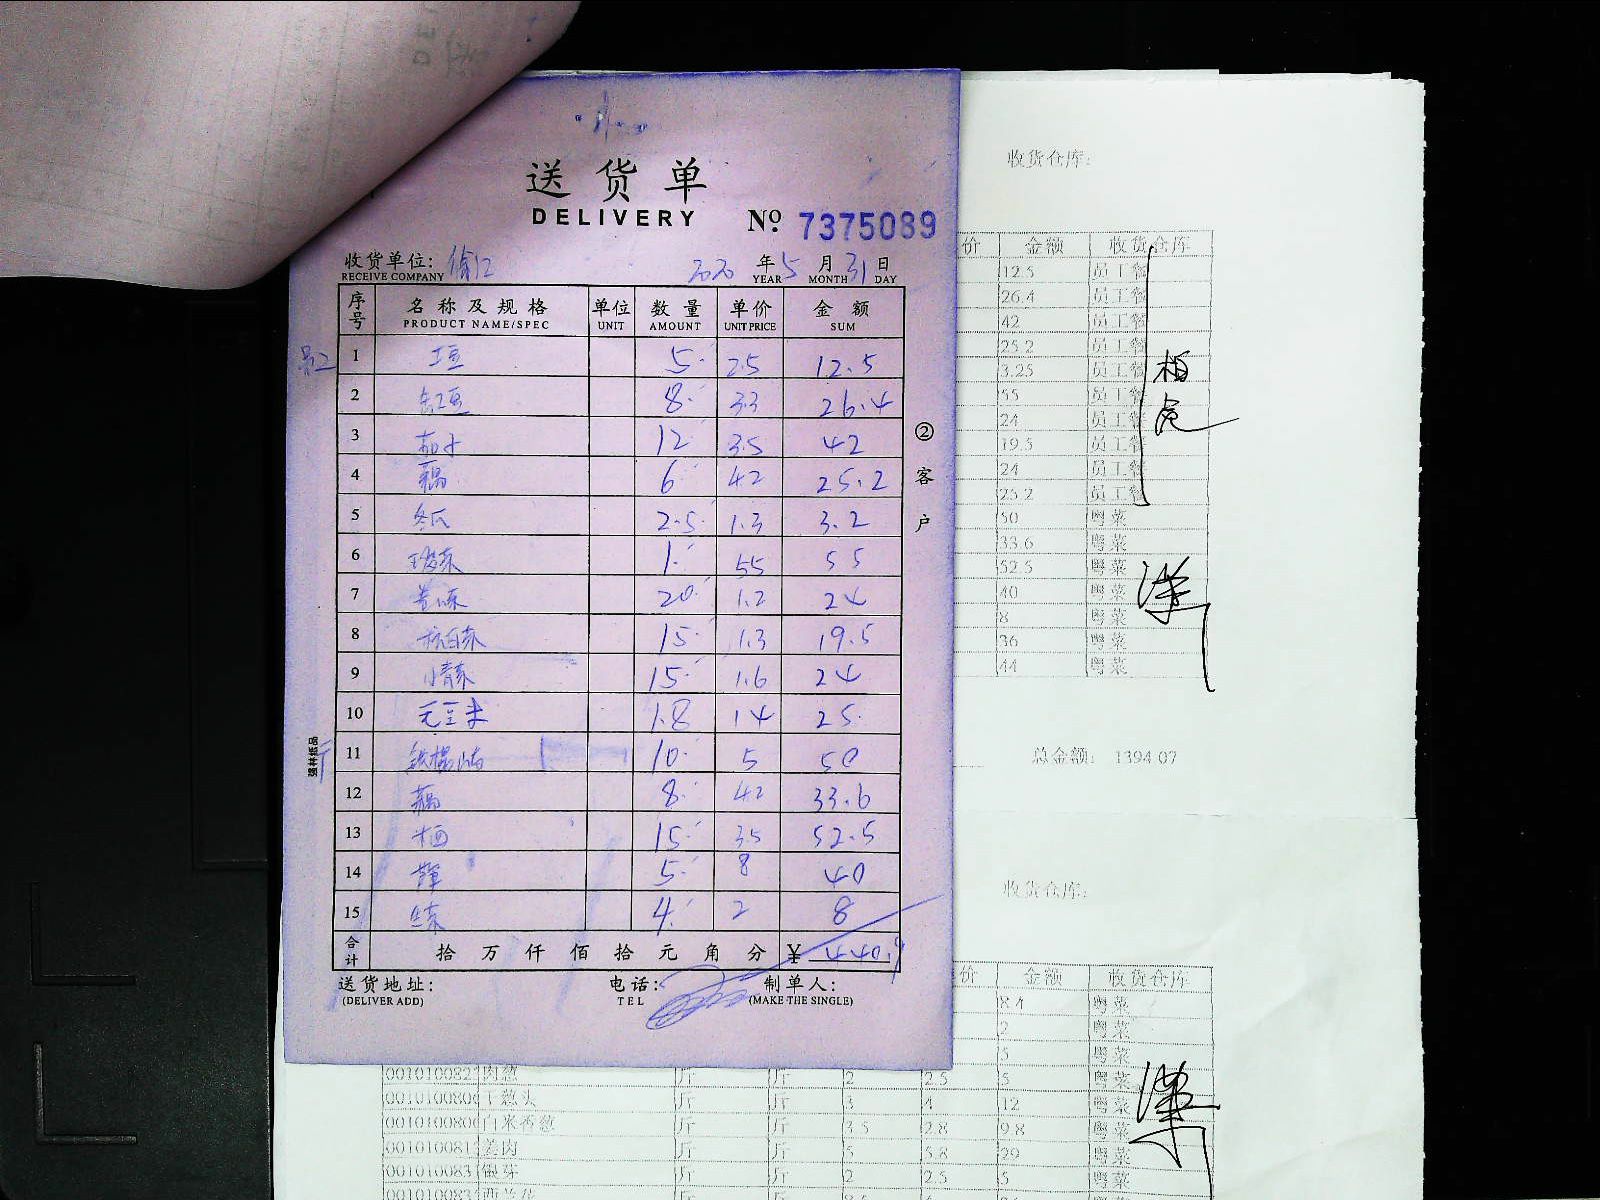 送货单
DELIVERY
№ 7375089
收货单位:
RECEIVE COMPANY
2020 年 5 月 31 日
YEAR MONTH DAY
序号 名称及规格 单位 数量 单价 金额
PRODUCT NAME/SPEC UNIT AMOUNT UNIT PRICE SUM
1 5. 2.5 12.5
2 缸豆 8. 3.3 26.4
3 茄子 12. 3.5 42
4 藕 6. 4.2 25.2
5 冬瓜 2.5. 1.3 3.2
6 1. 55 55
7 20. 1.2 24
8 杭白菜 15. 1.3 19.5
9 小青菜 15. 1.6 24
10 毛豆米 1.8 14 25.
11 铁棍山药 10. 5 50
12 藕 8. 4.2 33.6
13 15. 3.5 52.5
14 5. 8 40
15 生菜 4. 2 8
合计 拾 万 仟 佰 拾 元 角 分 ¥ 440.9
送货地址: 电话: 制单人:
(DELIVER ADD) TEL (MAKE THE SINGLE)
② 客户
强林纸品
收货仓库:
价 金额 收货仓库
12.5 员工餐
26.4 员工餐
42 员工餐
25.2 员工餐
3.25 员工餐
55 员工餐
24 员工餐
19.5 员工餐
24 员工餐
25.2 员工餐
50 粤菜
33.6 粤菜
52.5 粤菜
40 粤菜
8 粤菜
36 粤菜
44 粤菜
总金额: 1394.07
收货仓库:
价 金额 收货仓库
8.4 粤菜
2 粤菜
5 粤菜
001010082 肉葱 斤 斤 2 2.5 5 粤菜
00101008 干葱头 斤 斤 3 4 12 粤菜
00101008 白米香葱 斤 斤 3.5 2.8 9.8 粤菜
00101008 姜肉 斤 斤 5 5.8 29 粤菜
001010083 银芽 斤 斤 2 2.5 5 粤菜
001010083 西兰花 斤 斤